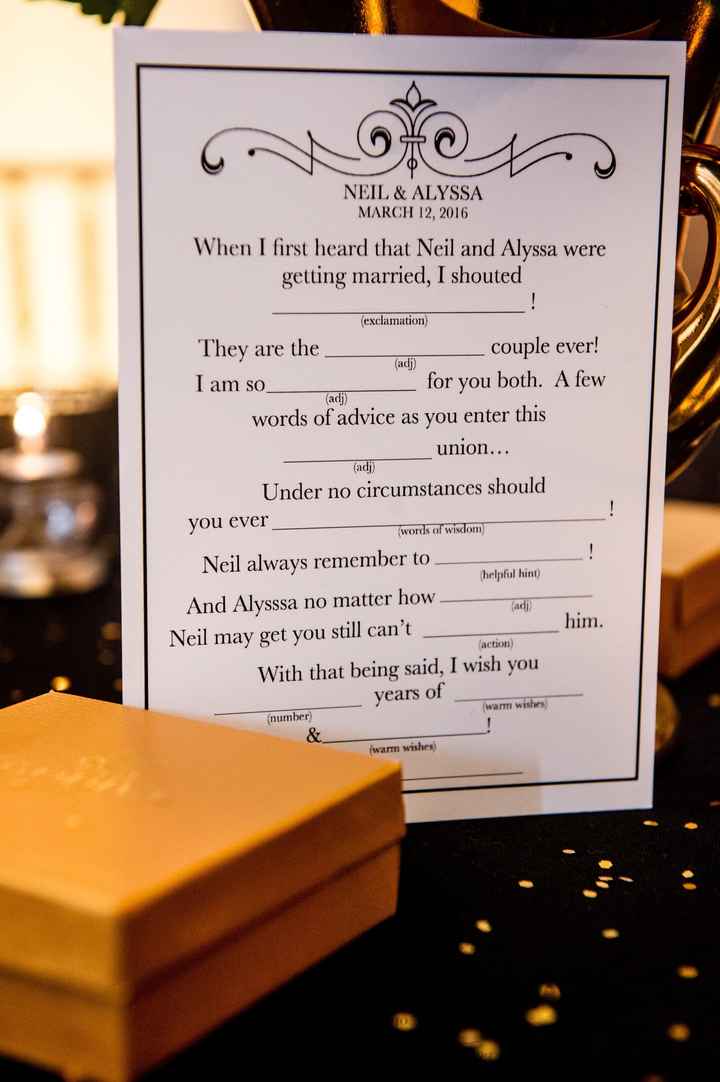 NEIL & ALYSSA
MARCH 12, 2016
When I first heard that Neil and Alyssa were
getting married, I shouted
____________________ !
(exclamation)
They are the ____________ couple ever!
(adj)
I am so____________ for you both. A few
(adj)
words of advice as you enter this
____________ union…
(adj)
Under no circumstances should
you ever ____________________________!
(words of wisdom)
Neil always remember to ____________ !
(helpful hint)
And Alysssa no matter how ____________
(adj)
Neil may get you still can’t ____________ him.
(action)
With that being said, I wish you
____________ years of ____________
(number) (warm wishes)
&____________!
(warm wishes)